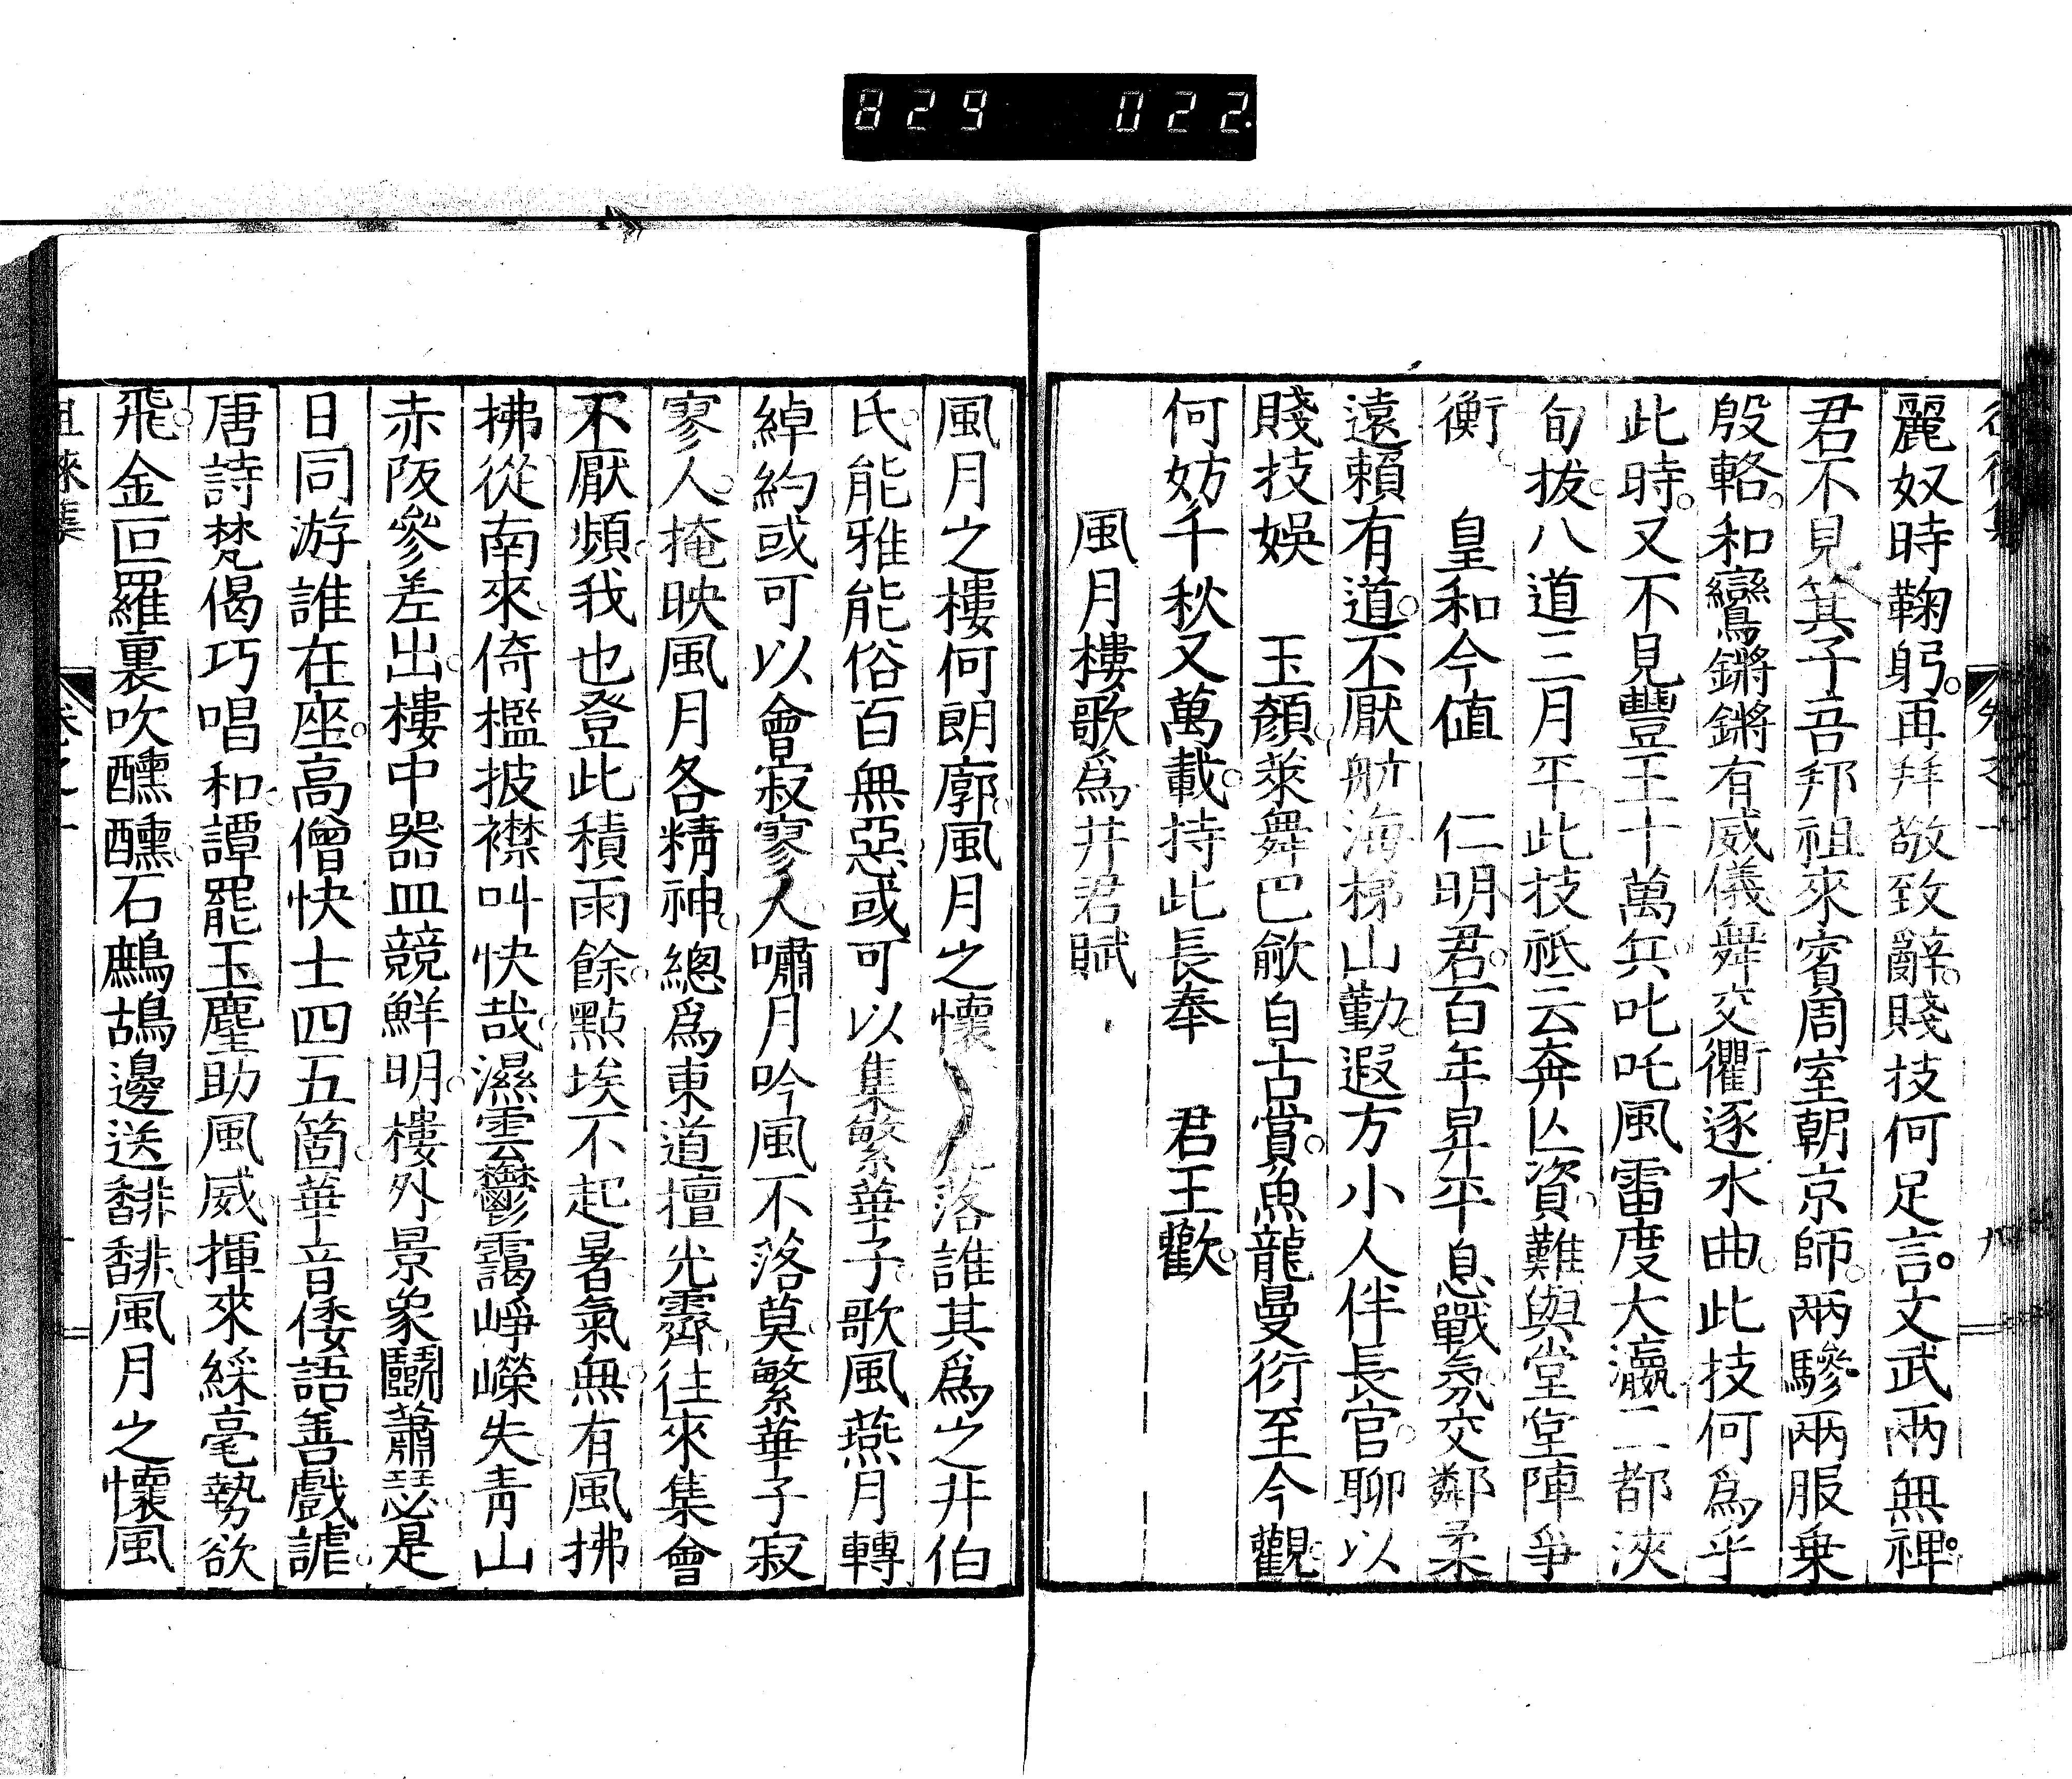 829 022
麗奴時鞠躬再拜敬致辭賤技何足言文武兩無裨
君不見箕子吾邦祖來賓周室朝京師兩驂兩服乗
殷輅和鸞鏘鏘有威儀舞交衢逐水曲此技何爲乎
此時又不見豐王十萬兵叱吒風雷度大瀛二都浹
旬拔八道三月平此技祇云奔亾資難與堂堂陣爭
衡 皇和今值 仁明君百年昇平息戰氛交鄰柔
遠賴有道不厭航海梯山勤遐方小人伴長官聊以
賤技娛 玉顏萊舞巴歈自古賞魚龍曼衍至今觀
何妨千秋又萬載持此長奉 君王歡
風月樓歌爲井君賦
風月之樓何朗廓風月之懷落誰其爲之井伯
氏能雅能俗百無惡或可以集繁華子歌風燕月轉
綽約或可以會寂寥人嘯月吟風不落莫繁華子寂
寥人掩映風月各精神總爲東道擅光霽往來集會
不厭頻我也登此積雨餘點埃不起暑氣無有風拂
拂從南來倚檻披襟叫快哉濕雲鬱靄崢嶸失青山
赤阪參差出樓中器皿競鮮明樓外景象鬬蕭瑟是
日同游誰在座高僧快士四五箇華音倭語善戲謔
唐詩梵偈巧唱和譚罷玉麈助風威揮來綵毫勢欲
飛金叵羅裏吹醺醺石鷓鴣邊送馡馡風月之懷風